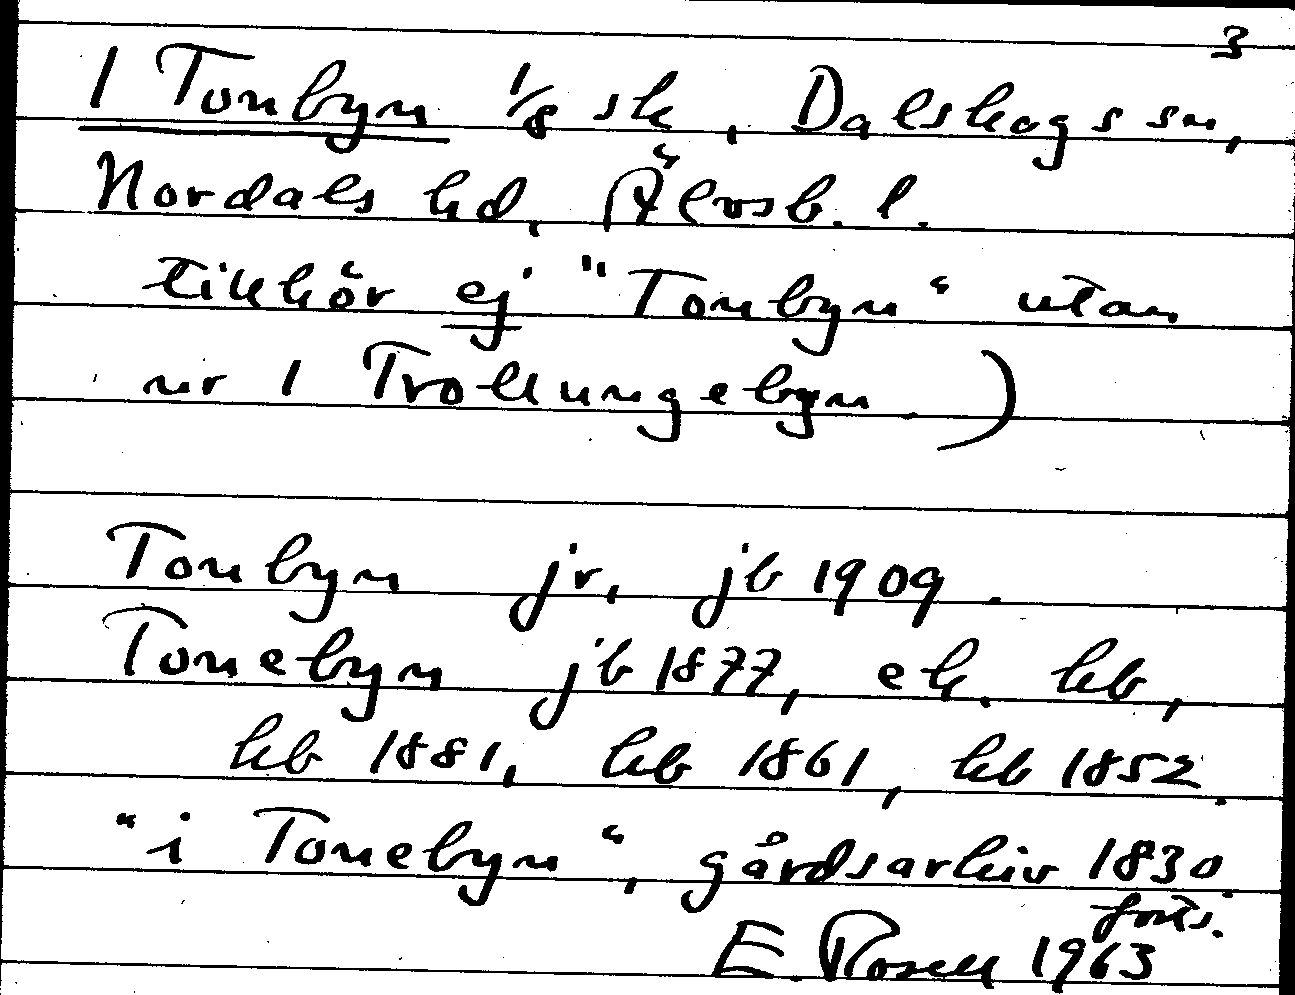 3
1 Tonbyn 1/8 sk, Dalskogs sn,
Nordals hd, Älvsb. l.
tillhör ej "Tonbyn" utan
nr 1 Trollungebyn.)
Tonbyn jr, jb 1909.
Tonebyn jb 1877, ek. kb,
kb 1881, kb 1861, kb 1852.
"i Tonebyn", gårdsarkiv 1830.
forts.
E. Rosell 1963